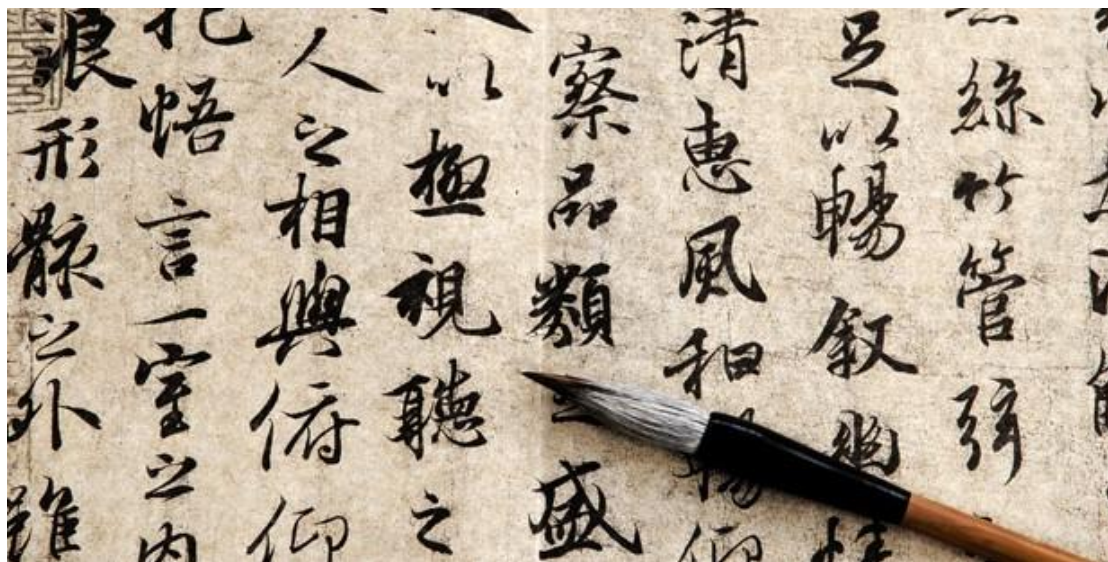 絲竹管弦
足以暢叙幽情
清惠風和暢仰
察品類之盛
以極視聽之
人之相與俯仰
抱悟言一室之内
浪形骸之外雖